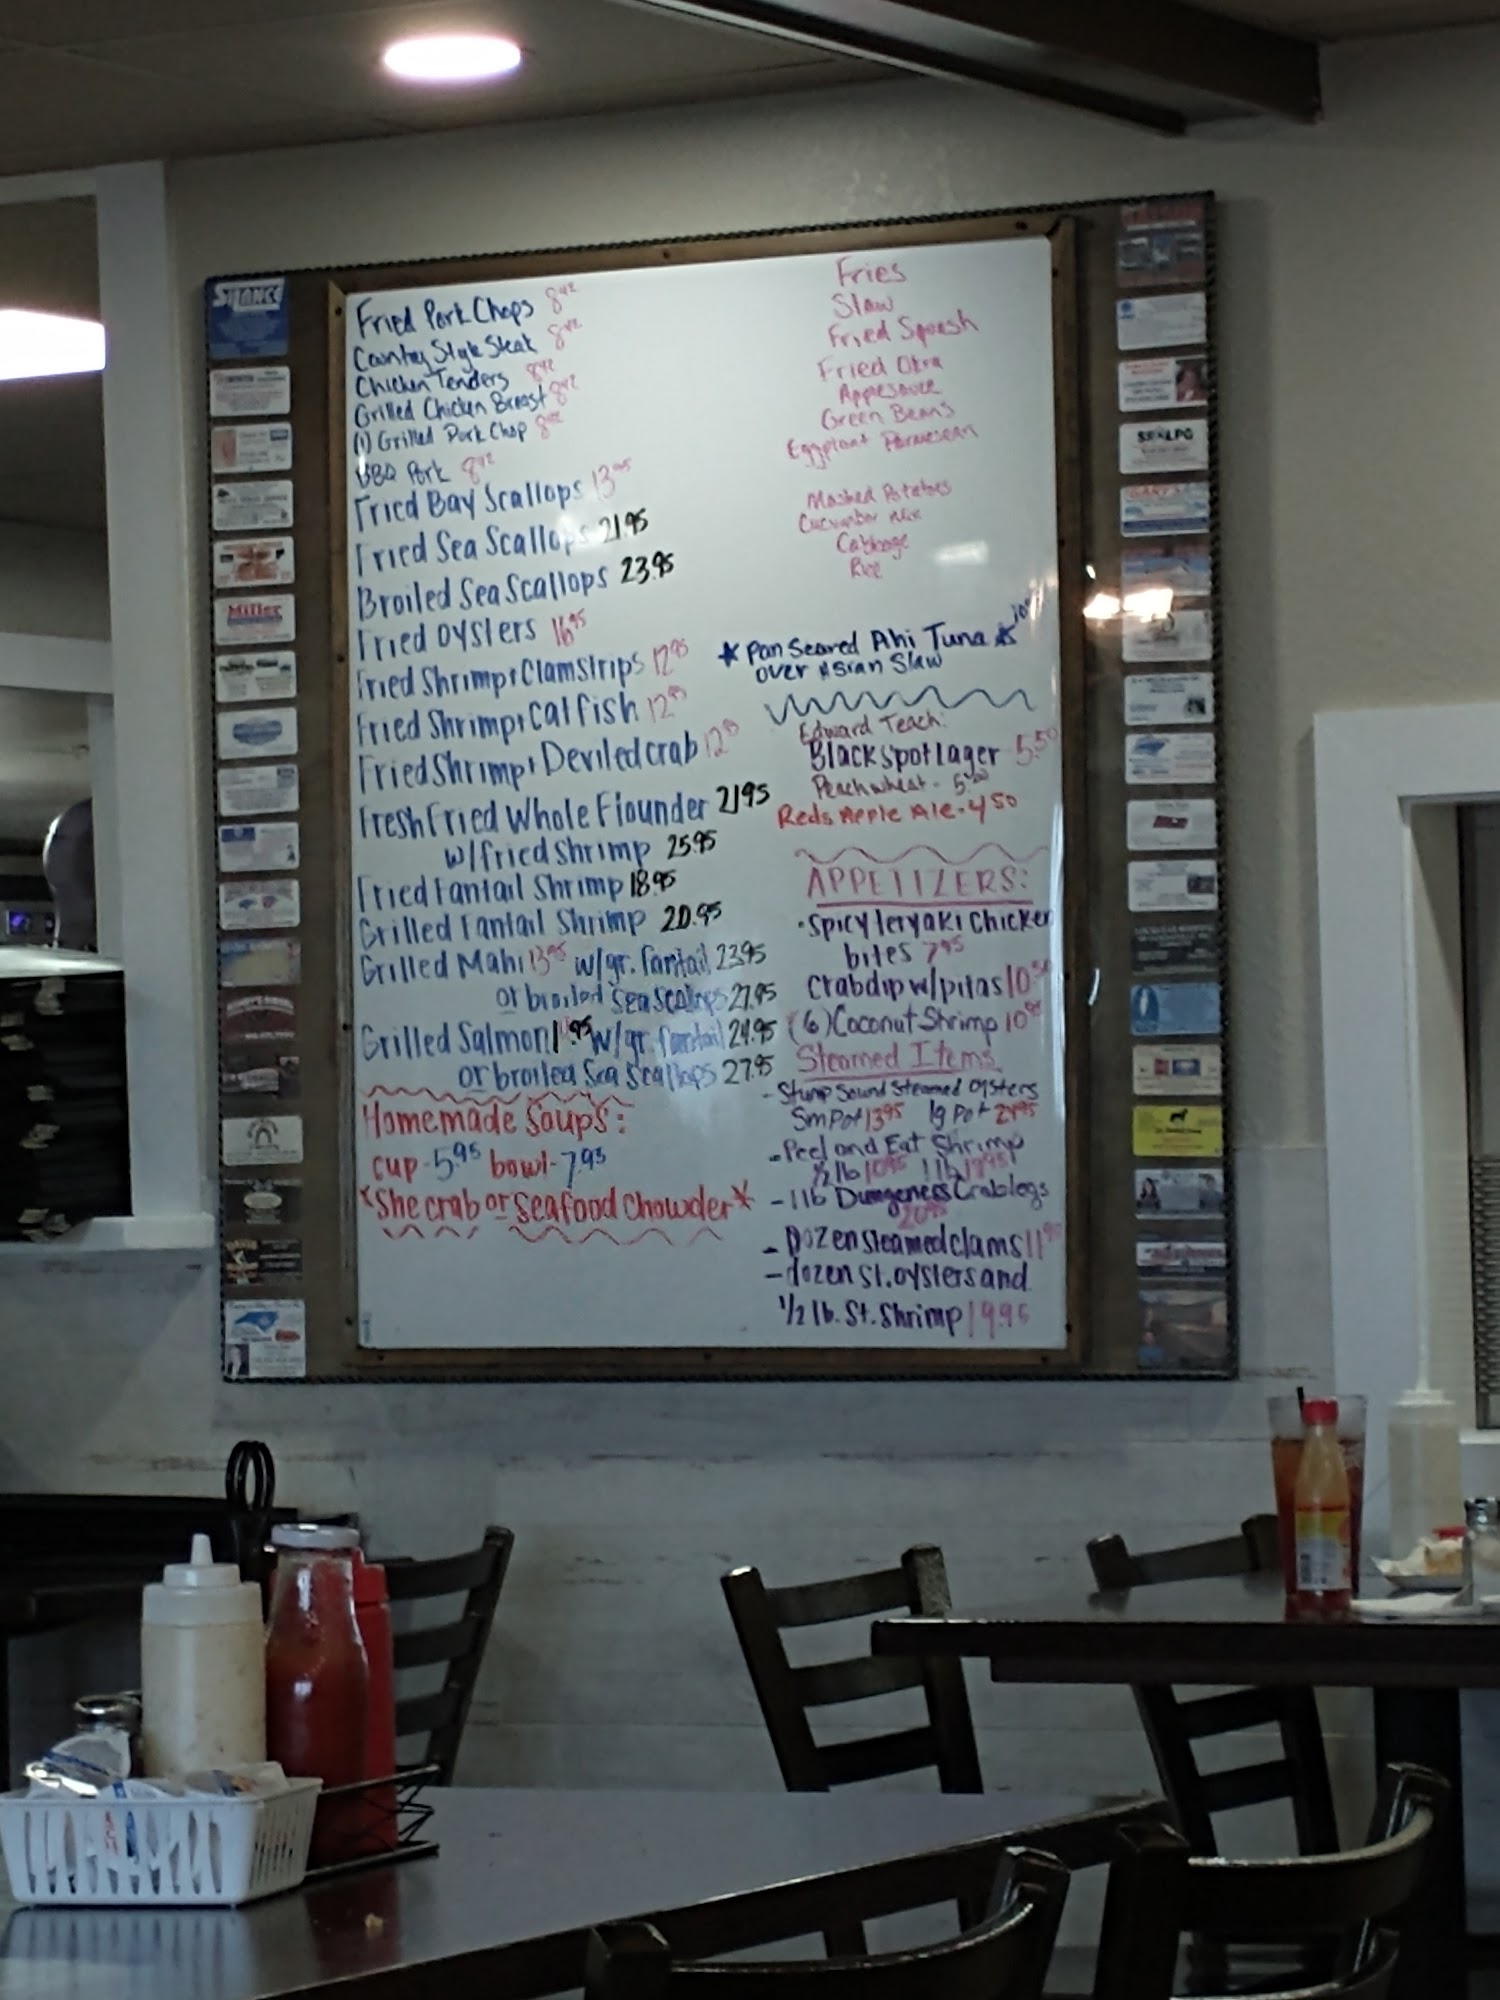 Fried Pork Chops 8
Country Style Steak 8
Chicken Tenders 8
Grilled Chicken Breast 8
(1) Grilled Pork Chop 8
BBQ Pork 8
Fried Bay Scallops 13
Fried Sea Scallops 21.95
Broiled Sea Scallops 23.95
Fried Oysters 16.95
Fried Shrimp + Clamstrips 12.95
Fried Shrimp + Catfish 12.95
Fried Shrimp + Deviled crab 12.95
Fresh Fried Whole Flounder 21.95
w/fried Shrimp 25.95
Fried Fantail Shrimp 18.95
Grilled Fantail Shrimp 20.95
Grilled Mahi 13.95 w/gr. fantail 23.95
or broiled Sea Scallops 27.95
Grilled Salmon w/gr. fantail 24.95
or broiled Sea Scallops 27.95
Homemade Soups:
cup - 5.95 bowl - 7.95
*She crab or Seafood Chowder*
Fries
Slaw
Fried Squash
Fried Okra
Applesauce
Green Beans
Eggplant Parmesean
Mashed Potatoes
Cucumber Mix
Cabbage
Rice
★ Pan Seared Ahi Tuna ★
over Asian Slaw
Edward Teach:
Black spot lager 5.50
Peach wheat - 5.50
Reds Apple Ale - 4.50
APPETIZERS:
• Spicy Teryaki Chicken
bites 7.95
Crab dip w/pitas 10
(6) Coconut Shrimp 10
Steamed Items
- Stump Sound Steamed Oysters
Sm Pot 13.95 lg Pot 21.95
- Peel and Eat Shrimp
1/2 lb 10.95 1 lb
- 1 lb Dungeness Crab legs
20.95
- Dozen steamed clams 11
- dozen st. oysters and
1/2 lb. St. Shrimp 19.95
Miller